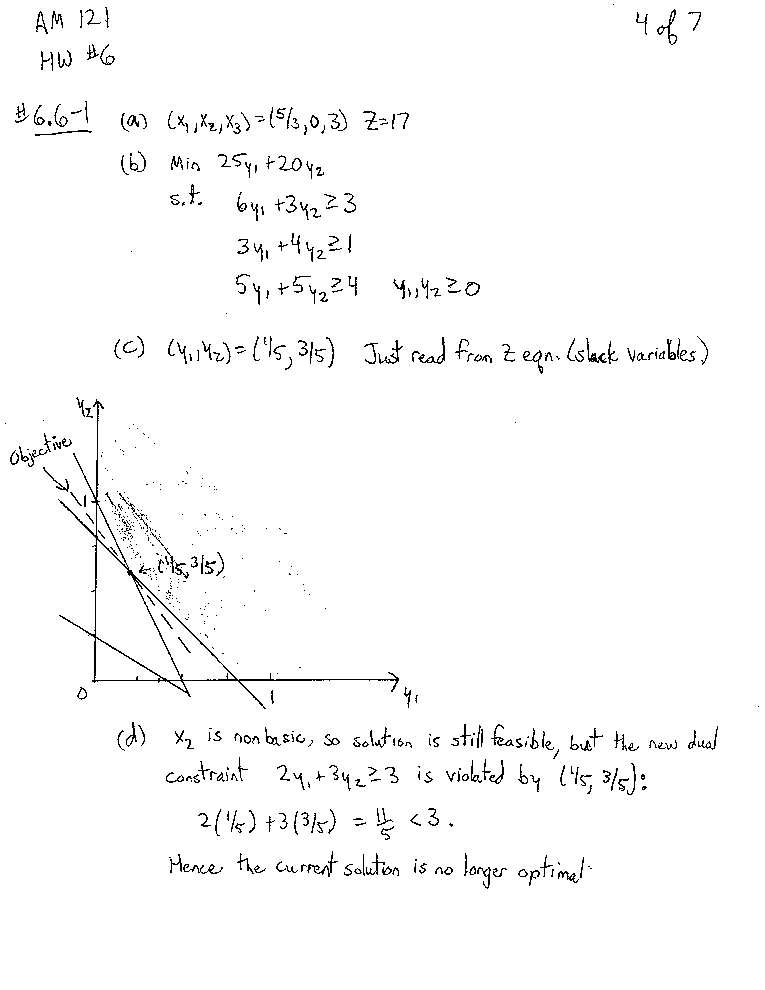 AM 121
4 of 7
HW #6
#6.6-1 (a) (x₁,x₂,x₃)=(5/3,0,3) Z=17
(b) Min 25y₁+20y₂
s.t. 6y₁+3y₂≥3
3y₁+4y₂≥1
5y₁+5y₂≥4 y₁,y₂≥0
(c) (y₁,y₂)=(1/5,3/5) Just read from Z eqn. (slack variables)
y₂
Objective
1
(1/5,3/5)
0
1
y₁
(d) x₂ is nonbasic, so solution is still feasible, but the new dual
constraint 2y₁+3y₂≥3 is violated by (1/5, 3/5):
2(1/5)+3(3/5) = 11/5 <3.
Hence the current solution is no longer optimal.